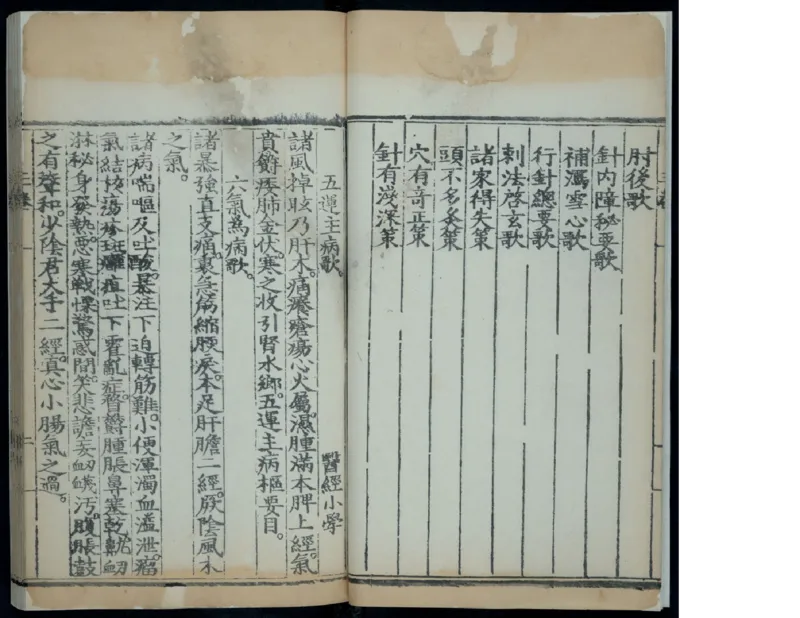 肘後歌
針內障秘要歌
補瀉雪心歌
行針總要歌
刺法啓玄歌
諸家得失策
頭不多灸策
穴有奇正策
針有淺深策
五運主病歌 醫經小學
諸風掉眩乃肝木。痛癢瘡瘍心火屬。濕腫滿本脾上經。氣
賁欝痿肺金伏。寒之收引腎水鄉。五運主病樞要目。
六氣為病歌。
諸暴強直支痛。裏急筋縮腰戾。本足肝膽二經。厥陰風木
之氣。
諸病喘嘔及吐酸。暴注下迫轉筋難。小便渾濁血溢泄。瘤
氣結核瘍疹斑。癰疽吐下霍亂症。瞀欝腫脹鼻塞乾。鼽衂
淋秘身發熱。惡寒戰慄驚惑間。笑悲譫妄衂衊汚。腹脹鼓
之有聲和。少陰君火手二經。真心小腸氣之過。